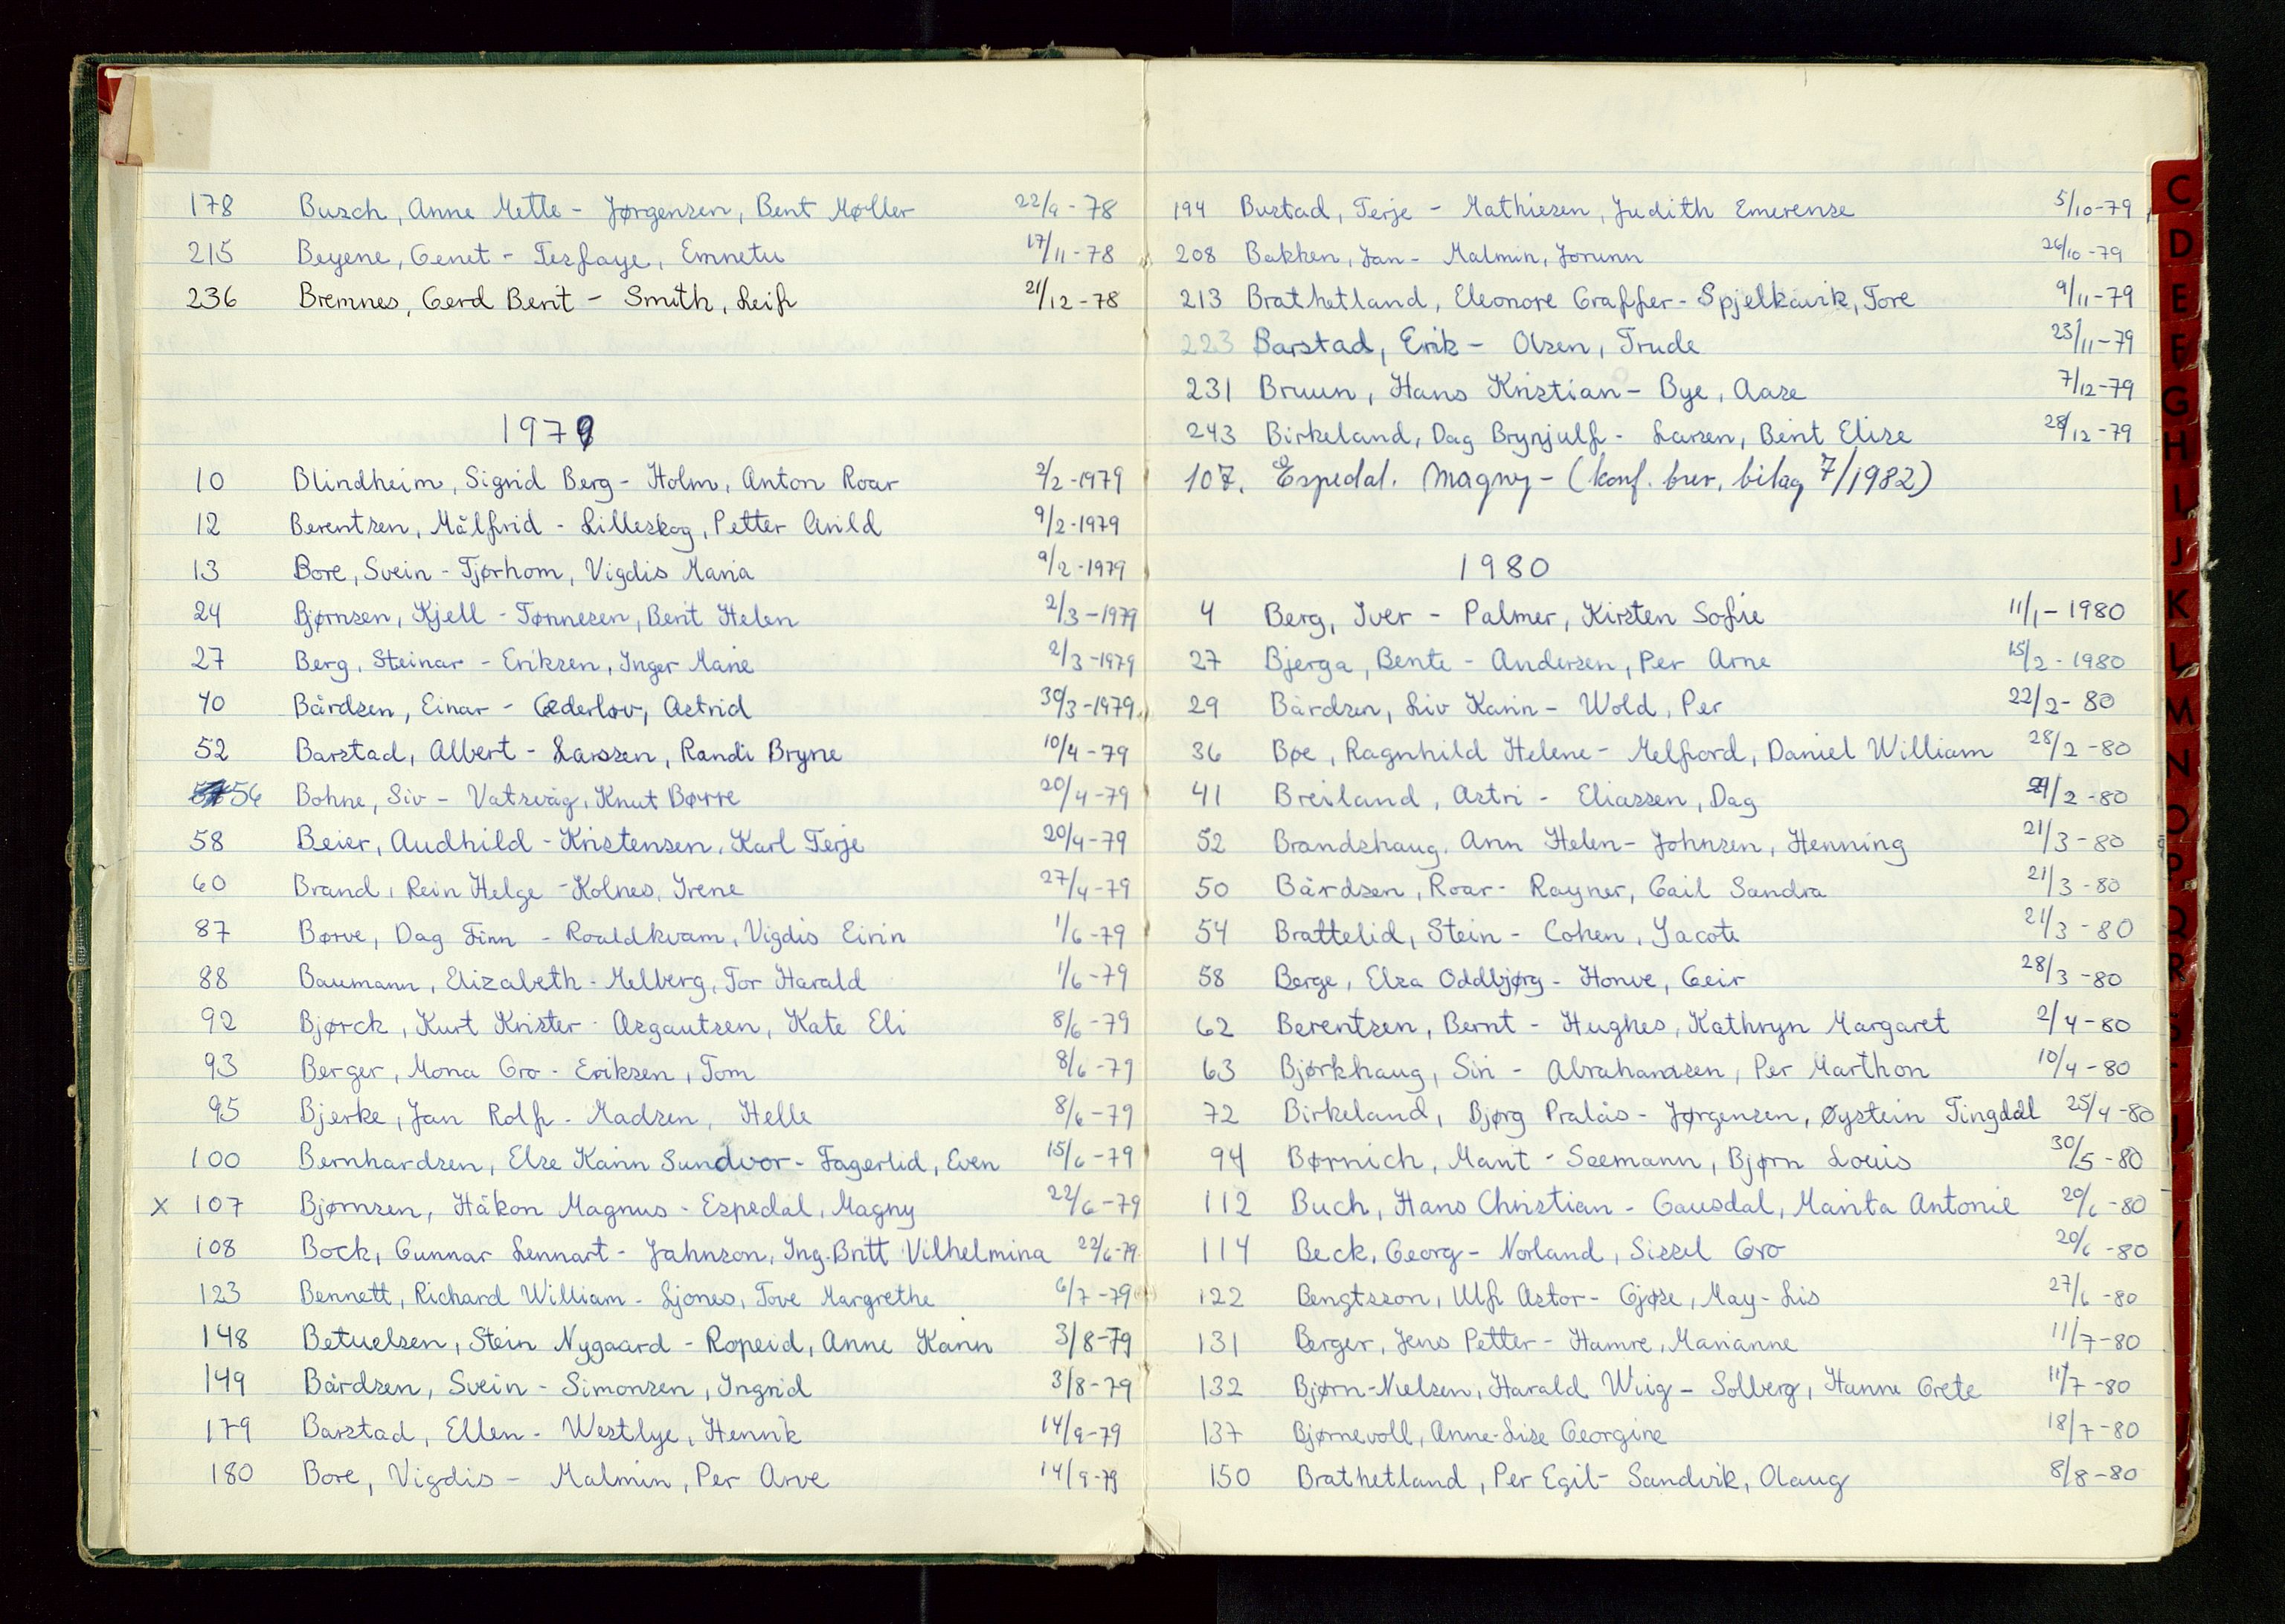 178 Busch, Anne Mette - Jørgensen, Bent Møller 22/9 - 78
215 Beyene, Genet - Tesfaye, Emnetu 17/11 - 78
236 Bremnes, Gerd Berit - Smith, Leif 21/12 - 78
1979
10 Blindheim, Sigrid Berg - Holm, Anton Roar 2/2 - 1979
12 Berentsen, Målfrid - Lilleskog, Petter Arild 9/2 - 1979
13 Bore, Svein - Tjørhom, Vigdis Maria 9/2 - 1979
24 Bjørnsen, Kjell - Tønnesen, Berit Helen 2/3 - 1979
27 Berg, Steinar - Eriksen, Inger Marie 2/3 - 1979
40 Bårdsen, Einar - Cederlöv, Astrid 30/3 - 1979
52 Barstad, Albert - Larssen, Randi Bryne 10/4 - 79
56 Bohne, Siv - Vatsvåg, Knut Børre 20/4 - 79
58 Beier, Audhild - Kristensen, Karl Terje 20/4 - 79
60 Brand, Rein Helge - Kolnes, Irene 27/4 - 79
87 Børve, Dag Finn - Roaldkvam, Vigdis Eirin 1/6 - 79
88 Baumann, Elizabeth - Melberg, Tor Harald 1/6 - 79
92 Bjørck, Kurt Krister - Asgautsen, Kate Eli 8/6 - 79
93 Berger, Mona Gro - Eriksen, Tom 8/6 - 79
95 Bjerke, Jan Rolf - Madsen, Helle 8/6 - 79
100 Bernhardsen, Else Karin Sundvor - Fagerlid, Even 15/6 - 79
x 107 Bjørnsen, Håkon Magnus - Espedal, Magny 22/6 - 79
108 Bock, Gunnar Lennart - Jahnson, Ing-Britt Vilhelmina 22/6 - 79
123 Bennett, Richard William - Ljones, Tove Margrethe 6/7 - 79
148 Betuelsen, Stein Nygaard - Ropeid, Anne Karin 3/8 - 79
149 Bårdsen, Svein - Simonsen, Ingrid 3/8 - 79
179 Barstad, Ellen - Westlye, Henrik 14/9 - 79
180 Bore, Vigdis - Malmin, Per Arve 14/9 - 79
194 Bustad, Terje - Mathiesen, Judith Emerense 5/10 - 79
208 Bakken, Jan - Malmin, Jorunn 26/10 - 79
213 Brathetland, Eleonore Graffer - Spjelkavik, Tore 9/11 - 79
223 Barstad, Erik - Olsen, Trude 23/11 - 79
231 Bruun, Hans Kristian - Bye, Aase 7/12 - 79
243 Birkeland, Dag Brynjulf - Larsen, Berit Elise 28/12 - 79
107. Espedal. Magny - (konf. brev. bilag 7/1982)
1980
4 Berg, Iver - Palmer, Kirsten Sofie 11/1 - 1980
27 Bjerga, Bente - Andersen, Per Arne 15/2 - 1980
29 Bårdsen, Liv Karin - Wold, Per 22/2 - 80
36 Bøe, Ragnhild Helene - Melfjord, Daniel William 28/2 - 80
41 Breiland, Astri - Eliassen, Dag 29/2 - 80
52 Brandshaug, Ann Helen - Johnsen, Henning 21/3 - 80
50 Bårdsen, Roar - Rayner, Gail Sandra 21/3 - 80
54 Brattelid, Stein - Cohen, Yacote 21/3 - 80
58 Berge, Elsa Oddbjørg - Honve, Geir 28/3 - 80
62 Berentsen, Bernt - Hughes, Kathryn Margaret 2/4 - 80
63 Bjørkhaug, Siri - Abrahamsen, Per Marthon 10/4 - 80
72 Birkeland, Bjørg Pralås - Jørgensen, Øystein Tingdal 25/4 - 80
94 Børnich, Marit - Seemann, Bjørn Louis 30/5 - 80
112 Buch, Hans Christian - Gausdal, Marita Antonie 20/6 - 80
114 Beck, Georg - Norland, Sissel Gro 20/6 - 80
122 Bengtsson, Ulf Astor - Gjøse, May-Lis 27/6 - 80
131 Berger, Jens Petter - Hamre, Marianne 11/7 - 80
132 Bjørn-Nielsen, Harald Wiig - Solberg, Hanne Grete 11/7 - 80
137 Bjørnevoll, Anne-Lise Georgine 18/7 - 80
150 Brathetland, Per Egil - Sandvik, Olaug 8/8 - 80
C
D
E
F
G
H
I
J
K
L
M
N
O
P
Q
R
S